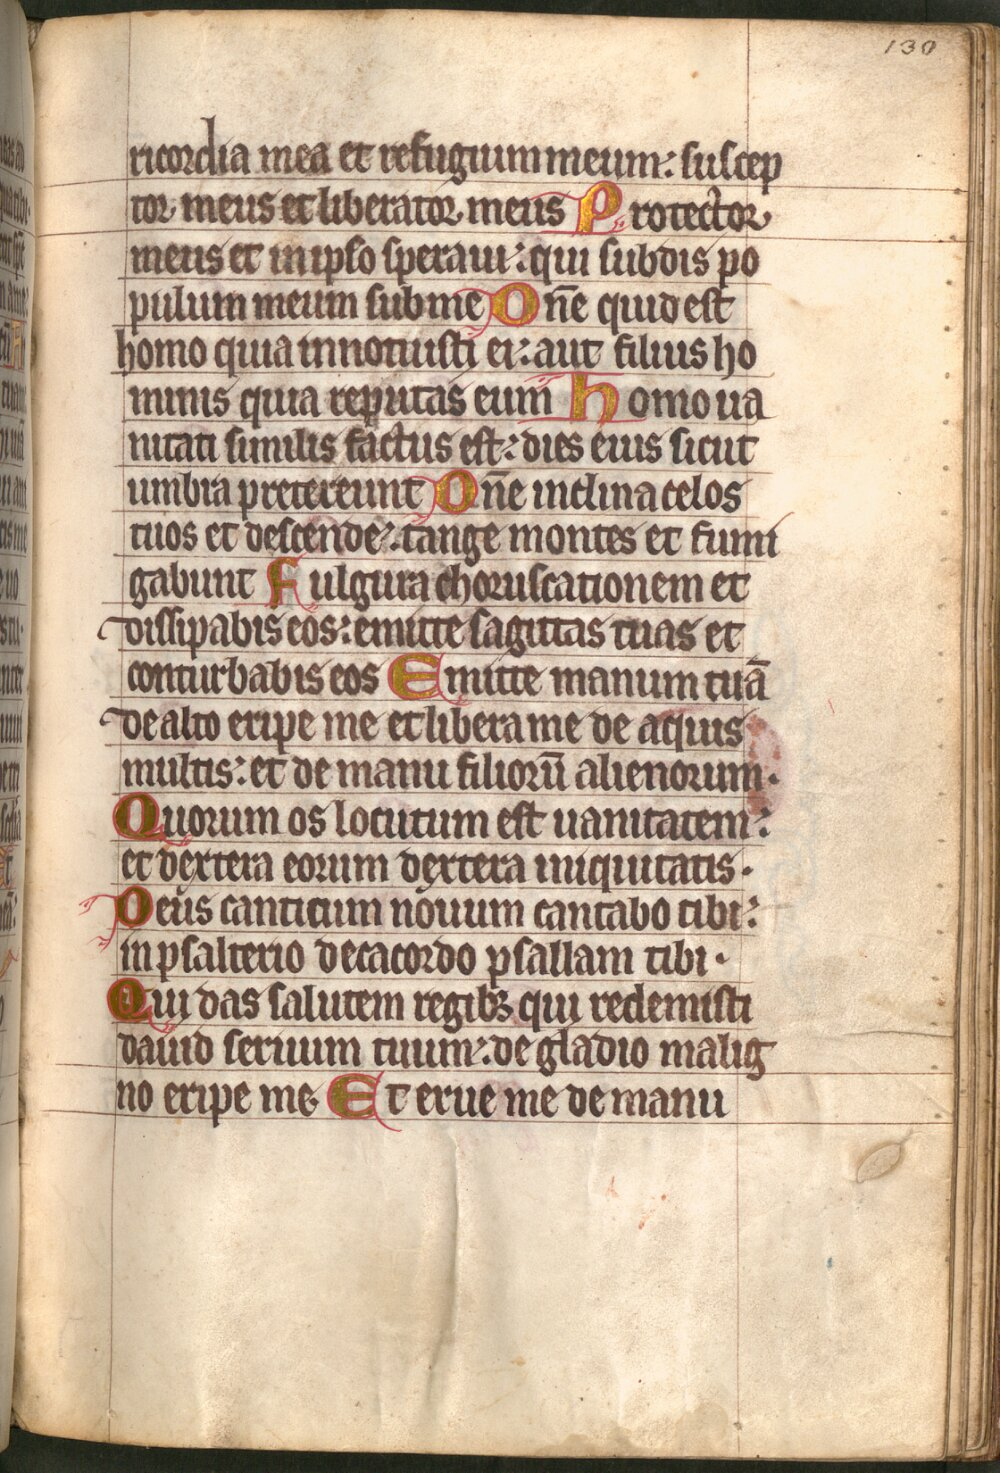 130
ricordia mea et refugium meum: suscep
tor meus et liberator meus Protector
meus et in ipso speraui: qui subdis po
pulum meum sub me Dñe quid est
homo quia innotuisti ei: aut filius ho
minis quia reputas eum Homo ua
nitati similis factus est: dies eius sicut
umbra pretereunt Dñe inclina celos
tuos et descende: tange montes et fumi
gabunt Fulgura choruscationem et
dissipabis eos: emitte sagittas tuas et
conturbabis eos Emitte manum tuā
de alto eripe me et libera me de aquis
multis: et de manu filiorū alienorum.
Quorum os locutum est uanitatem:
et dextera eorum dextera iniquitatis.
Deus canticum nouum cantabo tibi:
in psalterio decacordo psallam tibi.
Qui das salutem regibꝫ qui redemisti
dauid seruum tuum: de gladio malig
no eripe me. Et erue me de manu